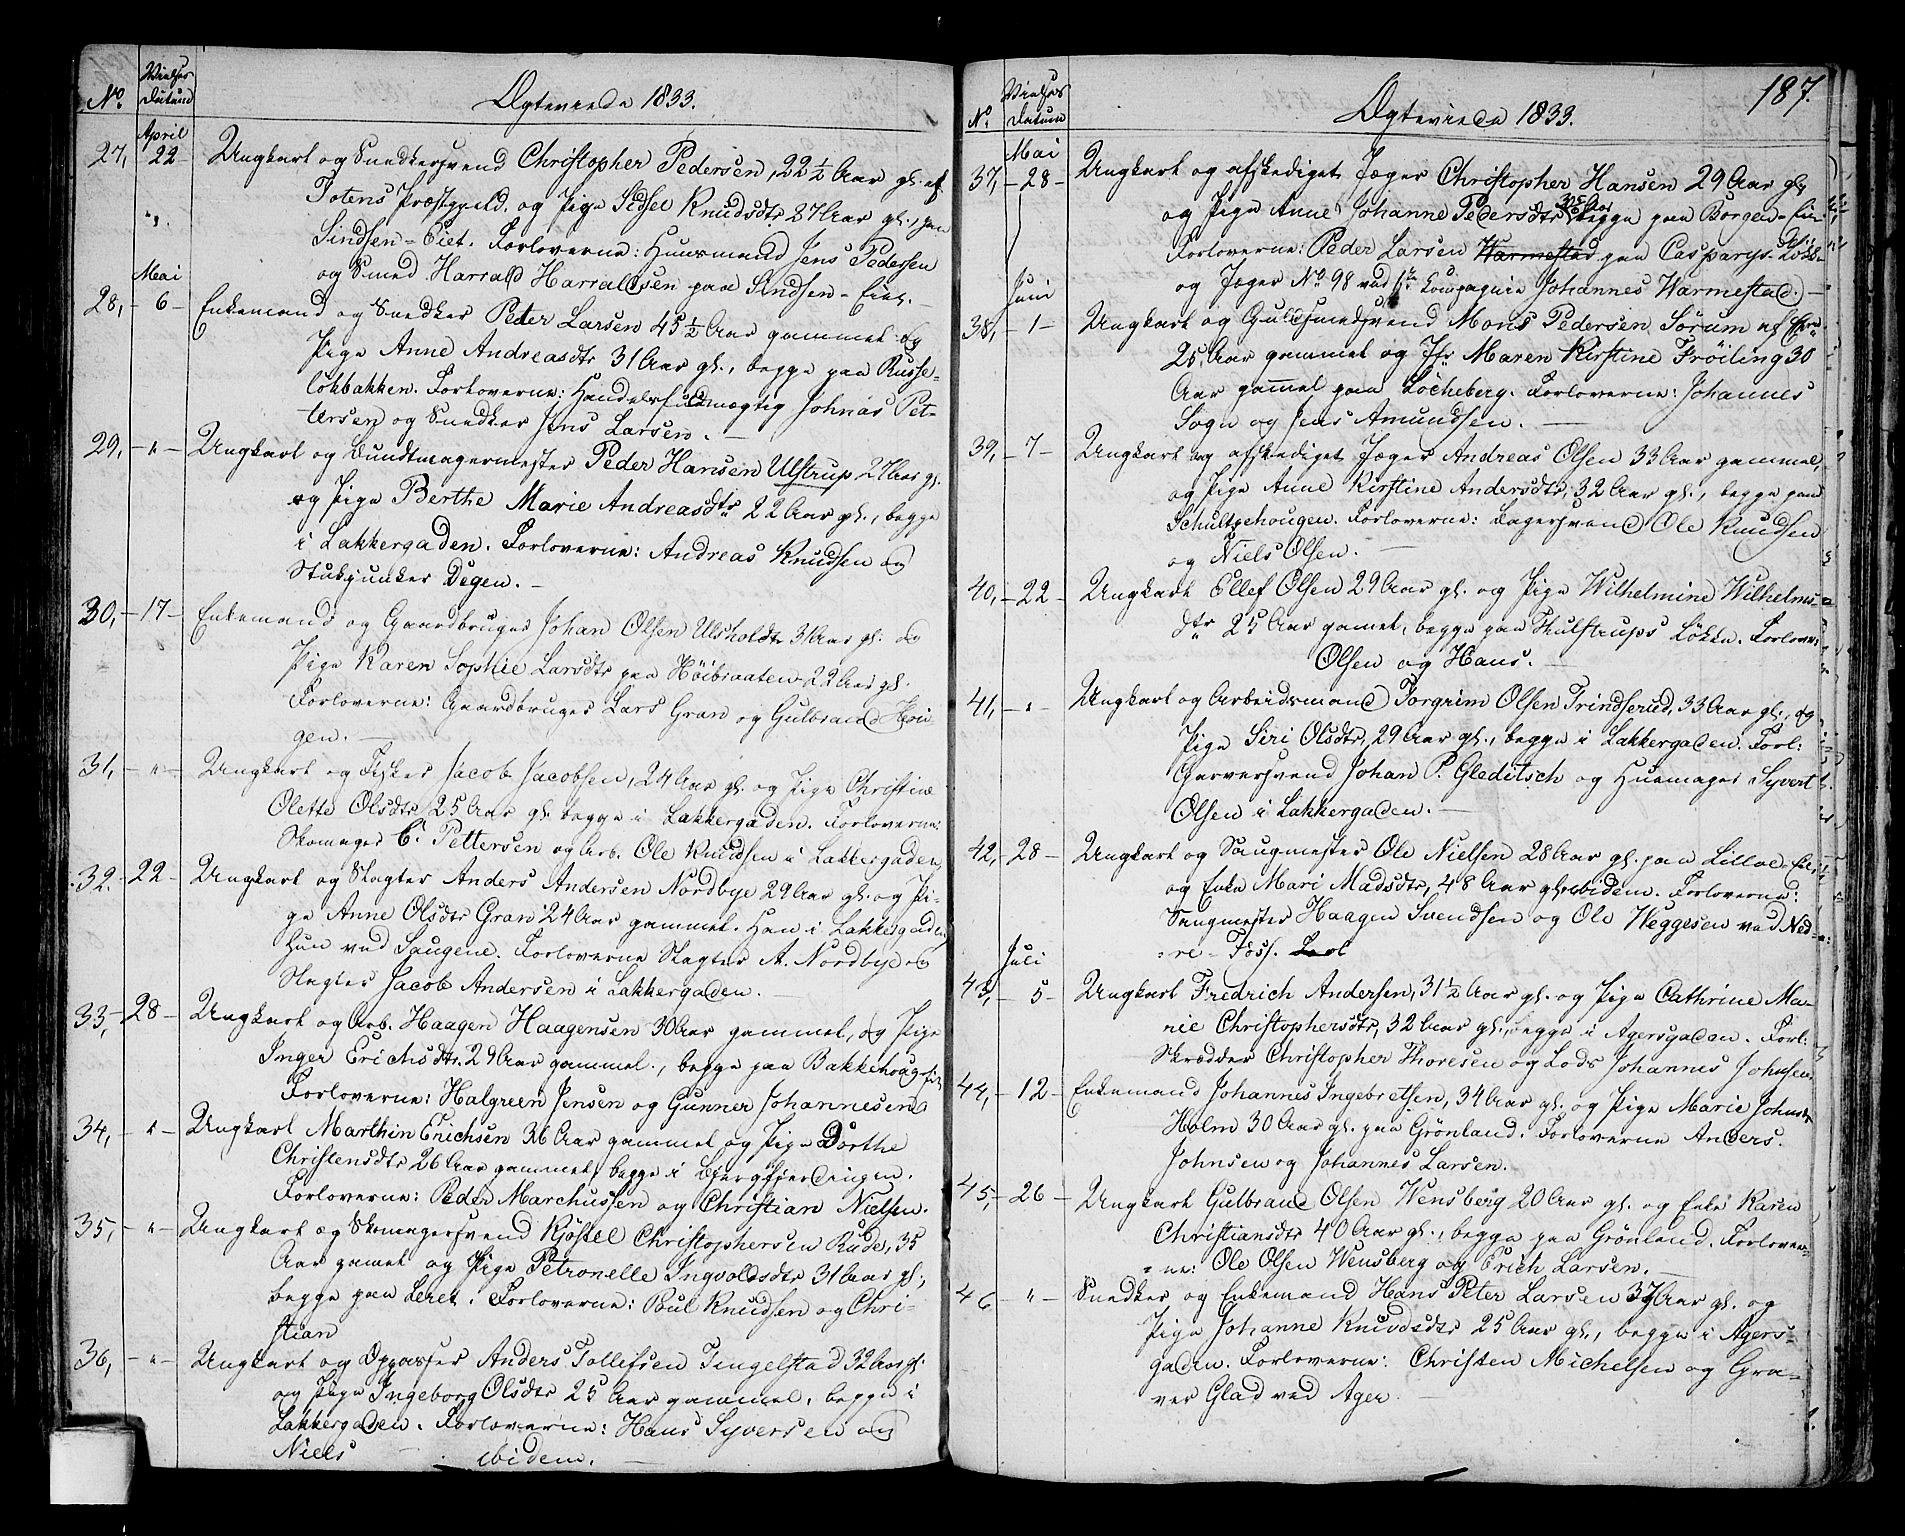 No. Vielses Datum
Ægteviede 1833.
April
27, 22 Ungkarl og Snedkersvend Christopher Pedersen, 22 1/2 Aar gl. af
Totens Præstegjeld. og Pige Sidsel Knudsdtr 27 Aar gl., paa
Sindsen-Eiet. Forloverne: Huusmand Jens Pedersen
og Smed Harrald Harraldsen paa Sindsen-Eiet.
Mai
28, 6 Enkemand og Snedker Peter Larsen 45 1/2 Aar gammel og
Pige Anne Andreasdtr 31 Aar gl., begge paa Russe-
løkbakken. Forloverne: Handelsfuldmægtig Johnas Pet-
tersen og Snedker Jens Larsen.
29, " Ungkarl og Bundtmagermester Peder Hansen Ulstrup 27 Aar gl.
og Pige Berthe Marie Andreasdtr 22 Aar gl., begge
i Lakkergaden. Forloverne: Andreas Knudsen og
Stubjunker Degen.
30, 17 Enkemand og Gaardbruger Johan Olsen Ulsholdt 31 Aar gl. og
Pige Karen Sophie Larsdtr paa Høibraaten 22 Aar gl.
Forloverne: Gaardbruger Lars Gran og Gulbrand
gen.
31, " Ungkarl og Fisker Jacob Jacobsen, 24 Aar gl. og Pige Christine
Olette Olsdtr 25 Aar gl. begge i Lakkergaden. Forloverne:
Skomager C. Pettersen og Arb. Ole Knudsen i Lakkergaden,
32. 22 Ungkarl og Slagter Anders Andersen Nordbye 29 Aar gl. og Pi-
ge Anne Olsdtr Gran 24 Aar gammel. Han i Lakkergaden
hun ved Saugene. Forloverne Slagter A. Nordbye og
Slagter Jacob Andersen i Lakkergaden.
33, 28 Ungkarl og Arb. Haagen Haagensen 30 Aar gammel, og Pige
Inger Erichsdtr. 29 Aar gammel., begge paa Bakkehoug-
Forloverne: Halgreen Jensen og Gunner Johannesen
34, " Ungkarl Marthin Erichsen 36 Aar gammel og Pige Dorthe
Christensdtr 26 Aar gammel, begge i Bergfjerdingen.
Forloverne: Peder Marchussen og Christian Nielsen.
35, " Ungkarl og Skomagersvend Kjøstel Christophersen Rude, 35
Aar gamel og Pige Petronelle Ingvoldsdtr 31 Aar gl.,
begge paa Leret. Forloverne: Poul Knudsen og Chri-
stian
36, " Ungkarl og Opvarter Anders Tollefsen Tingelstad 32 Aar gl.
og Pige Ingeborg Olsdtr 25 Aar gammel, begge i
Lakkergaden. Forloverne: Hans Syversen og
Niels ibidem.
187.
No. Vielses Datum
Ægteviede 1833.
Mai
37, 28 Ungkarl og afskediget Jæger Christopher Hansen 29 Aar gl
og Pige Anne Johanne Pedersdtr begge paa Borgen-Eie
Forloverne: Peder Larsen Warmestad paa Casparys
og Jæger No 98 ved Compagnie Johannes Warmestad.
Juni
38, 1 Ungkarl og Guldsmedsvend Mons Pedersen Sørum af
25 Aar gammel og Jfr. Maren Kirstine Frøiling 30
Aar gamel paa Løcheberg. Forloverne: Johannes
Sogn og Jens Amundsen.
39, 7 Ungkarl og afskediget Jæger Andreas Olsen 33 Aar gammel,
og Pige Anne Kirstine Andersdtr, 32 Aar gl., begge paa
Schultzehougen. Forloverne: Bagersvend Ole Knudsen
og Niels Olsen.
40, 22 Ungkarl Ellef Olsen 29 Aar gl. og Pige Wilhelmine Wilhelms-
dtr 25 Aar gamel, begge paa Thulstrups Løkke. Forlover:
Olsen og Hans.
41, " Ungkarl og Arbeidsmand Torgrim Olsen Trindserud, 33 Aar gl., og
Pige Siri Olsdtr, 29 Aar gl., begge i Lakkergaden. Forl:
Garversvend Johan P. Gleditsch og Huemager Syvert
Olsen i Lakkergaden.
42, 28 Ungkarl og Saugmester Ole Nielsen 28 Aar gl. paa Lilloe-Eie,
og Enke Mari Madsdtr, 48 Aar gl. ibidem. Forloverne:
Saugmester Haagen Svendsen og Ole Weggesen ved Ned-
re-Foss.
Juli
43, 5 Ungkarl Fredrich Andersen, 31 1/2 Aar gl. og Pige Cathrine Ma-
rie Christophersdtr, 32 Aar gl., begge i Agersgaden. Forl:
Skrædder Christopher Thoresen og Lods Johannes Johnsen.
44, 12 Enkemand Johannes Ingebretsen, 34 Aar gl. og Pige Marie Johnsdtr
Holm 30 Aar gl. paa Grønland. Forloverne Anders
Johnsen og Johannes Larsen.
45, 26 Ungkarl Gulbrand Olsen Wensberg 20 Aar gl. og Enke Karen
Christiansdtr 40 Aar gl., begge paa Grønland. Forlover-
ne: Ole Olsen Wensberg og Erich Larsen.
46 " Snedker og Enkemand Hans Peter Larsen 37 Aar gl. og
Pige Johanne Knudsdtr 25 Aar gl., begge i Agers-
gaden. Forloverne: Christen Michelsen og Gra-
ver Glad ved Ager.